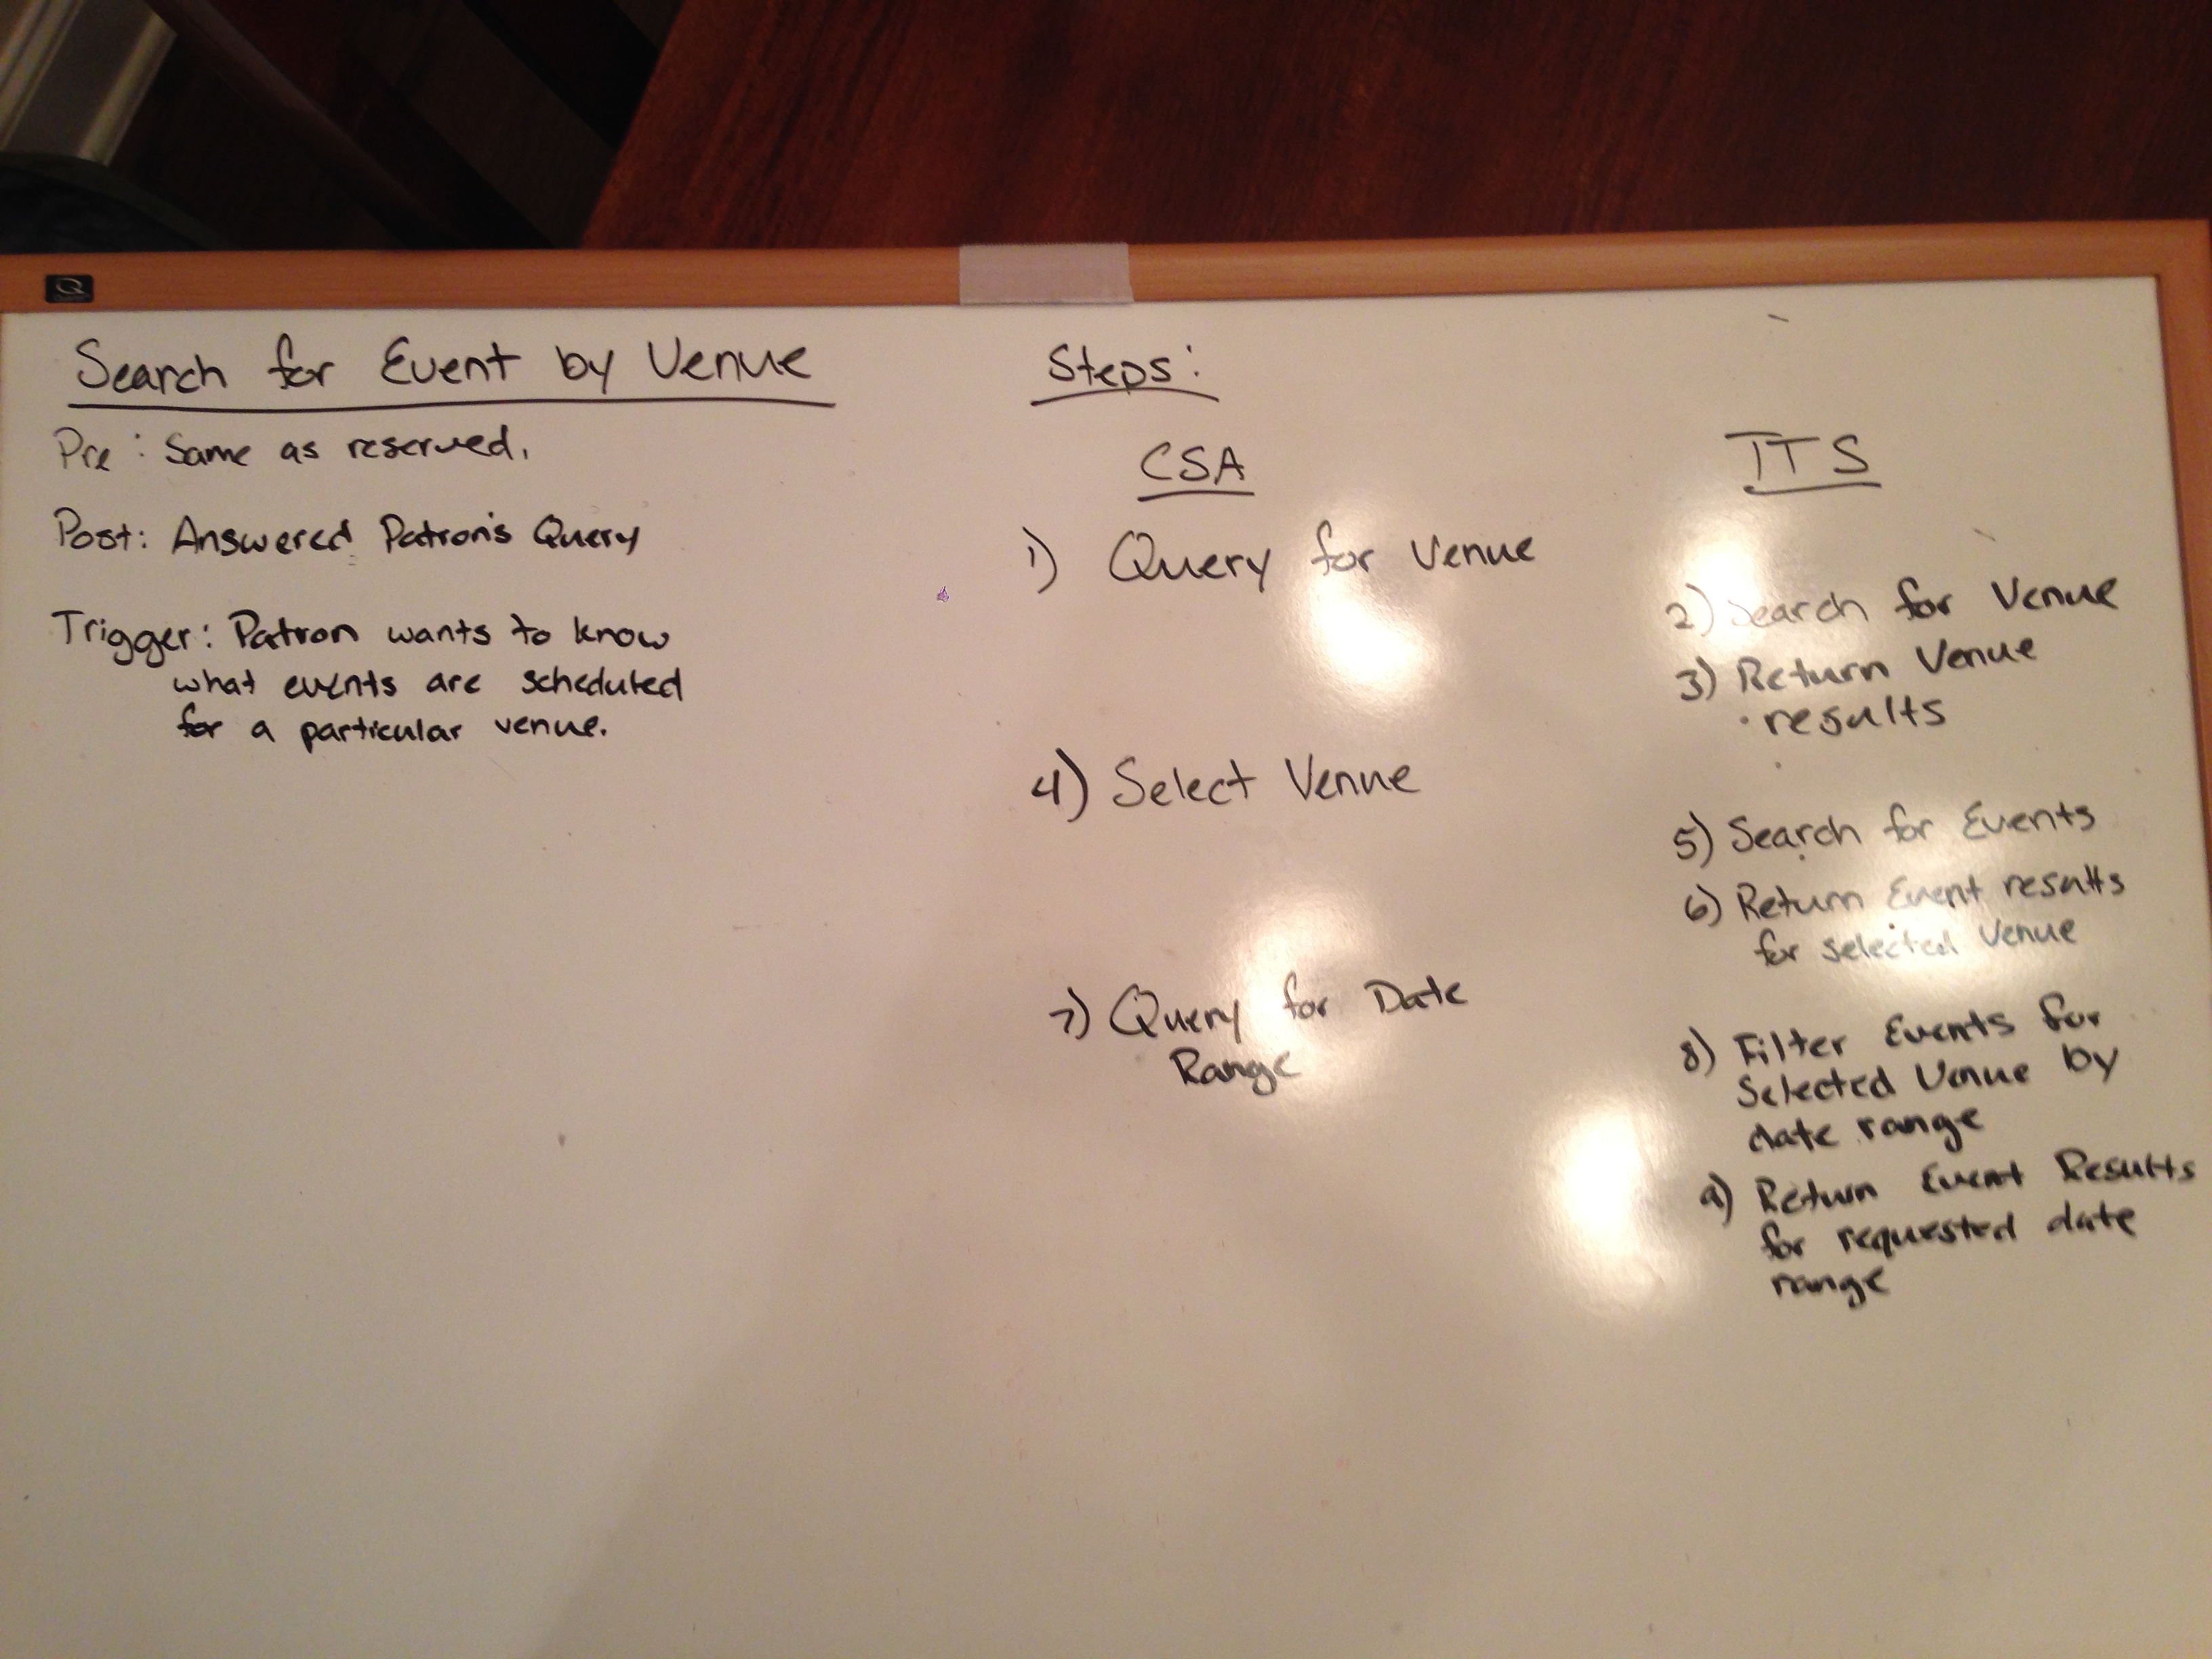 Search for Event by Venue
Pre: Same as reserved.
Post: Answered Patron's Query
Trigger: Patron wants to know
what events are scheduled
for a particular venue.
Steps:
CSA
1) Query for Venue
4) Select Venue
7) Query for Date
Range
TTS
2) Search for Venue
3) Return Venue
results
5) Search for Events
6) Return Event results
for selected Venue
8) Filter Events for
Selected Venue by
date range
9) Return Event Results
for requested date
range